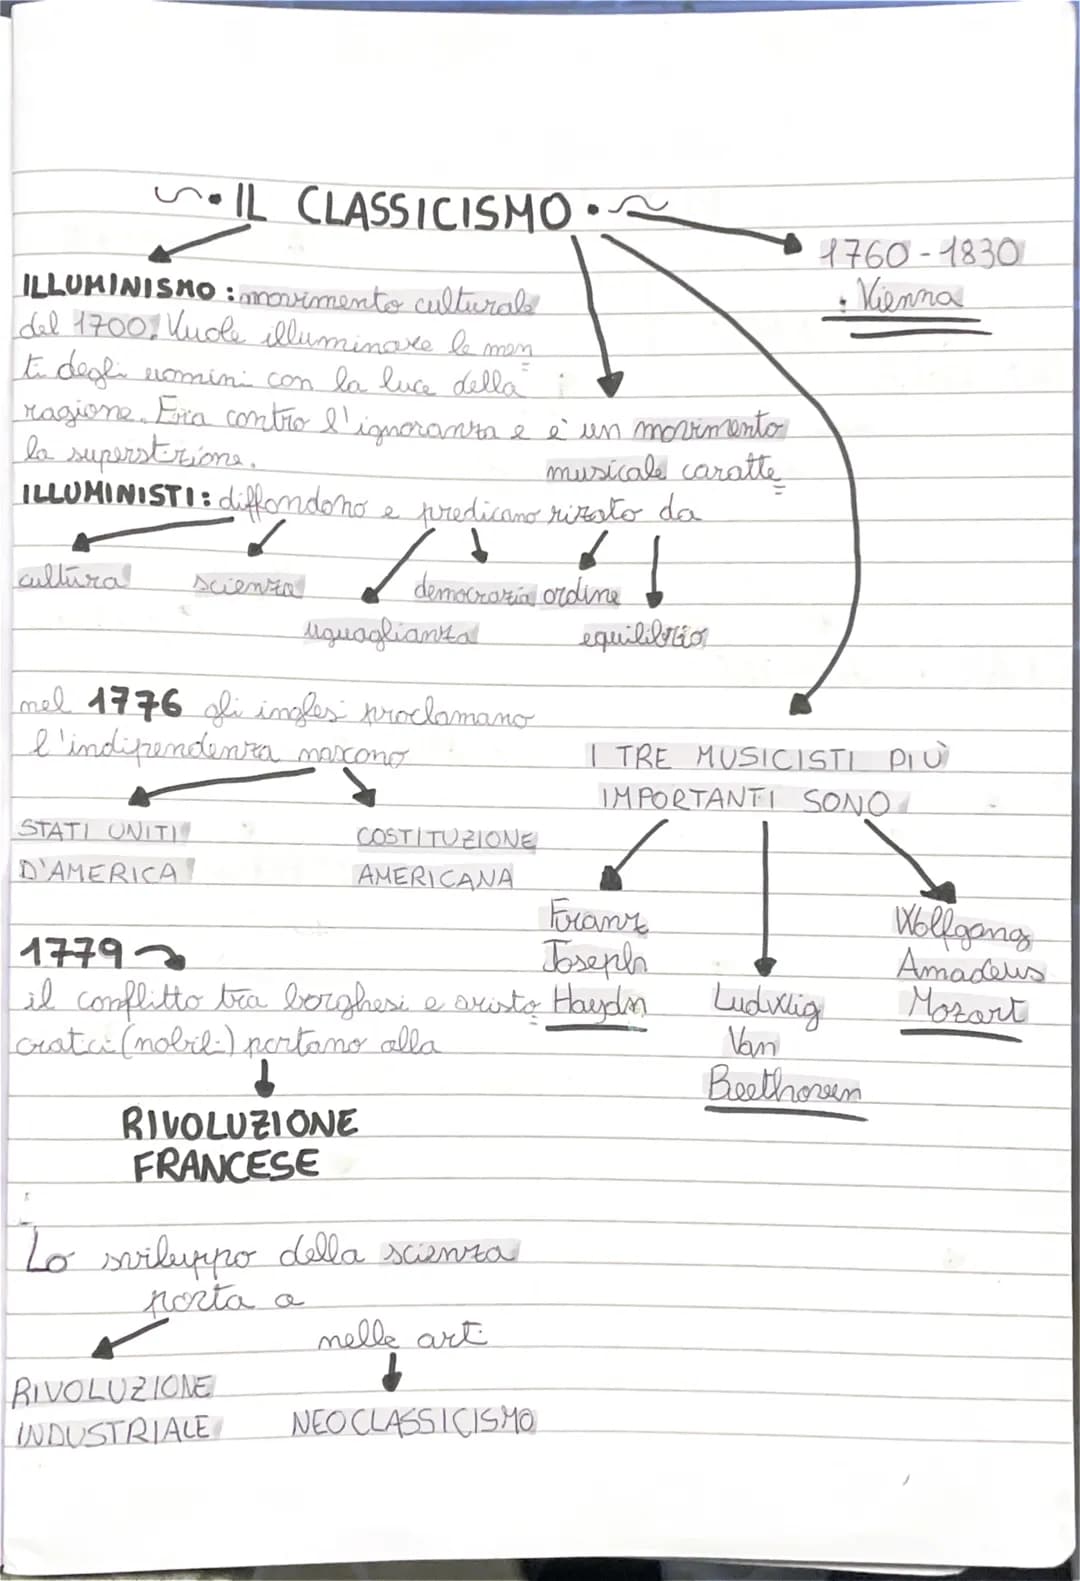 IL CLASSICISMO
1760-1830
Vienna
ILLUMINISMO: movimento culturale
del 1700. Vuole illuminare le men
ti degli uomini con la luce della
ragione. Era contro l'ignoranza e
la superstizione.
è un movimento
musicale caratte
rizato da
ordine
equilibrio
ILLUMINISTI: diffondono e predicano
cultura
scienza
uguaglianza
democrazia
nel 1776 gli inglesi proclamano
l'indipendenza nascono
STATI UNITI
D'AMERICA
COSTITUZIONE
AMERICANA
I TRE MUSICISTI PIÙ
IMPORTANTI SONO
Franz
Joseph
Haydn
Ludwig
Van
Beethoven
Wolfgang
Amadeus
Mozart
1779
il conflitto tra borghesi e aristo
cratici (nobili) portano alla
RIVOLUZIONE
FRANCESE
Lo sviluppo della scienza
porta a
RIVOLUZIONE
INDUSTRIALE
nelle arti
NEOCLASSICISMO